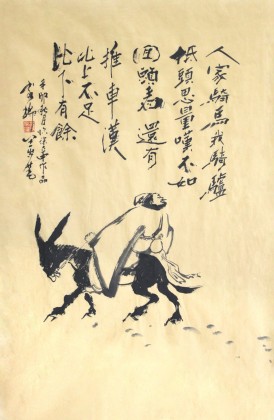 人家騎馬我騎驢
低頭思量嘆不如
回頭看還有
推車漢
比上不足
比下有餘